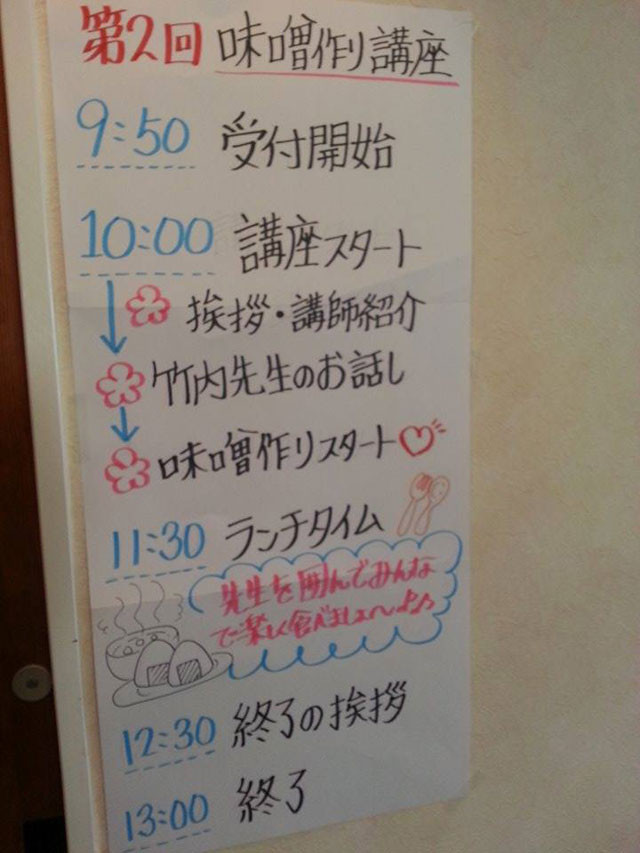 第2回 味噌作り講座
9:50 受付開始
10:00 講座スタート
挨拶・講師紹介
竹内先生のお話し
味噌作りスタート
11:30 ランチタイム
先生を囲んでみんな
で楽しく食べましょ〜♪♪
12:30 終了の挨拶
13:00 終了